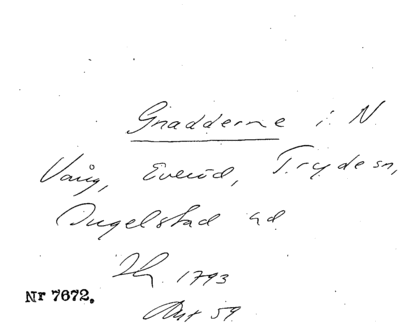 Gnadderne i N
Vång, Everöd, Tryde sn,
Ingelstad hd.
1793
Nr 7672.
59